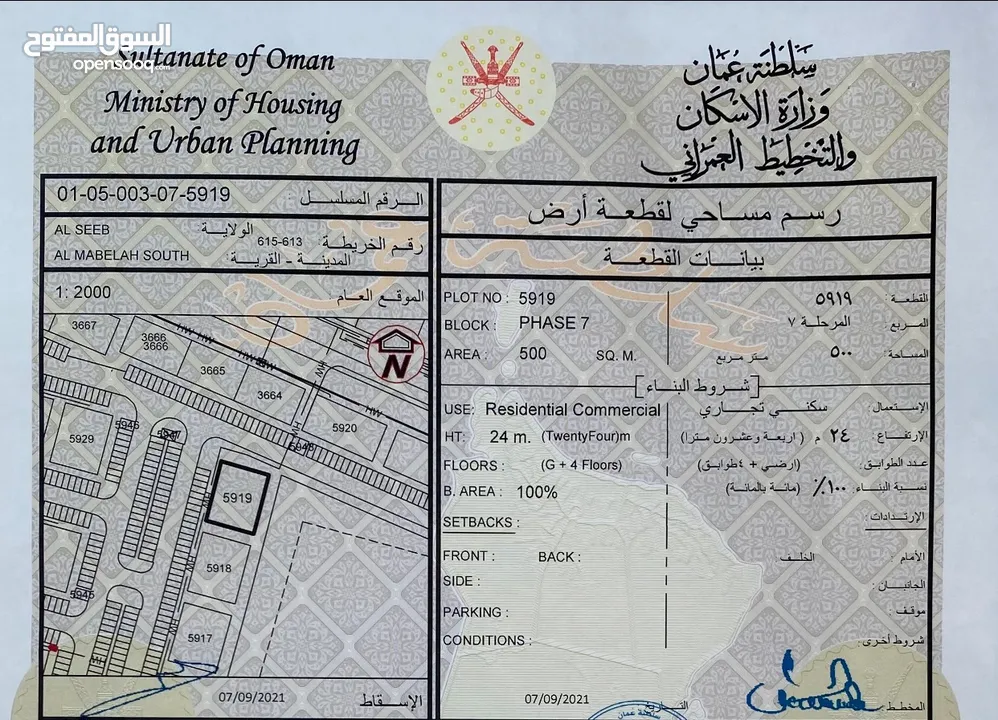 السوق المفتوح
opensooq.com
Sultanate of Oman
Ministry of Housing
and Urban Planning
سلطنة عمان
وزارة الاسكان
والتخطيط العمراني
01-05-003-07-5919 الرقم المسلسل :
AL SEEB الولاية :
رقم الخريطة : 615-613
AL MABELAH SOUTH المدينة - القرية :
1: 2000 الموقع العام
رسم مساحي لقطعة أرض
بيانات القطعة
PLOT NO : 5919
القطعة : ٥٩١٩
BLOCK : PHASE 7
المربع : المرحلة ٧
AREA : 500 SQ. M.
المساحة : ٥٠٠ متر مربع
[شروط البناء]
USE: Residential Commercial
الإستعمال: سكني تجاري
HT: 24 m. (TwentyFour)m
الإرتفاع : ٢٤ م (اربعة وعشرون مترا)
FLOORS : (G + 4 Floors)
عدد الطوابق: (ارضي + ٤طوابق)
B. AREA : 100%
نسبة البناء: ١٠٠٪ (مائة بالمائة)
SETBACKS :
الإرتدادات:
FRONT : BACK :
الأمام : الخلف
SIDE :
الجانبان :
PARKING :
موقف :
CONDITIONS :
شروط أخرى:
07/09/2021 التاريخ
المخطط
3667
3666
3666
3665
3664
HW
HW
HW
HW
HW
HW
5920
5929
5946
5947
5948
N
5919
5918
HW
5917
HW
5945
HW
07/09/2021 الإسقاط
سلطنة عمان